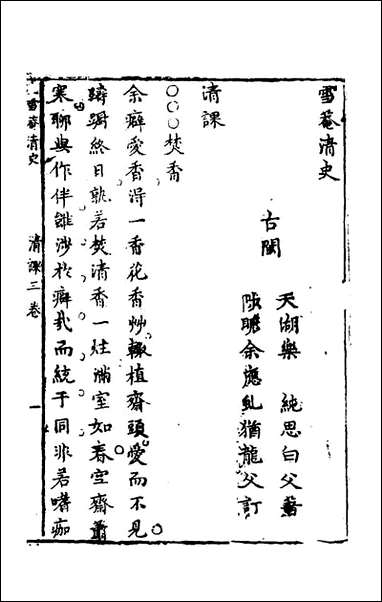 雪菴清史
古閩
天湖樂　純思白父著
陟瞻余應虬猶龍父訂
清課
○○○焚香
余癖愛香淂一香花香艸輙植齋頭愛而不見
躊躕終日孰若焚清香一炷滿室如春空齋蕭
寒聊與作伴雖涉於癖哉而統于同非若嗜痂
雪菴清史　清課三卷　一